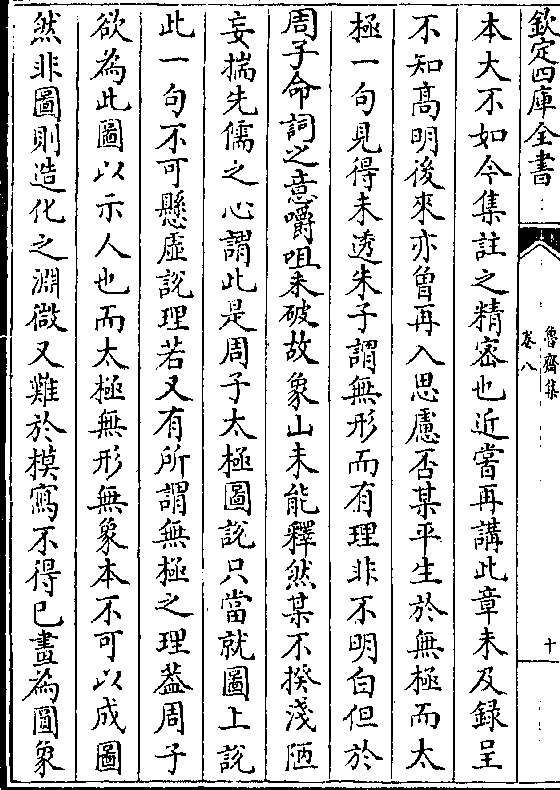 欽定四庫全書
魯齋集
卷八
十
本大不如今集註之精密也近嘗再講此章未及錄呈
不知髙明後來亦曾再入思慮否某平生於無極而太
極一句見得未透朱子謂無形而有理非不明白但於
周子命詞之意嚼咀未破故象山未能釋然某不揆淺陋
妄揣先儒之心謂此是周子太極圖說只當就圖上說
此一句不可懸虛說理若又有所謂無極之理葢周子
欲為此圖以示人也而太極無形無象本不可以成圖
然非圖則造化之淵微又難於模寫不得已畫為圖象